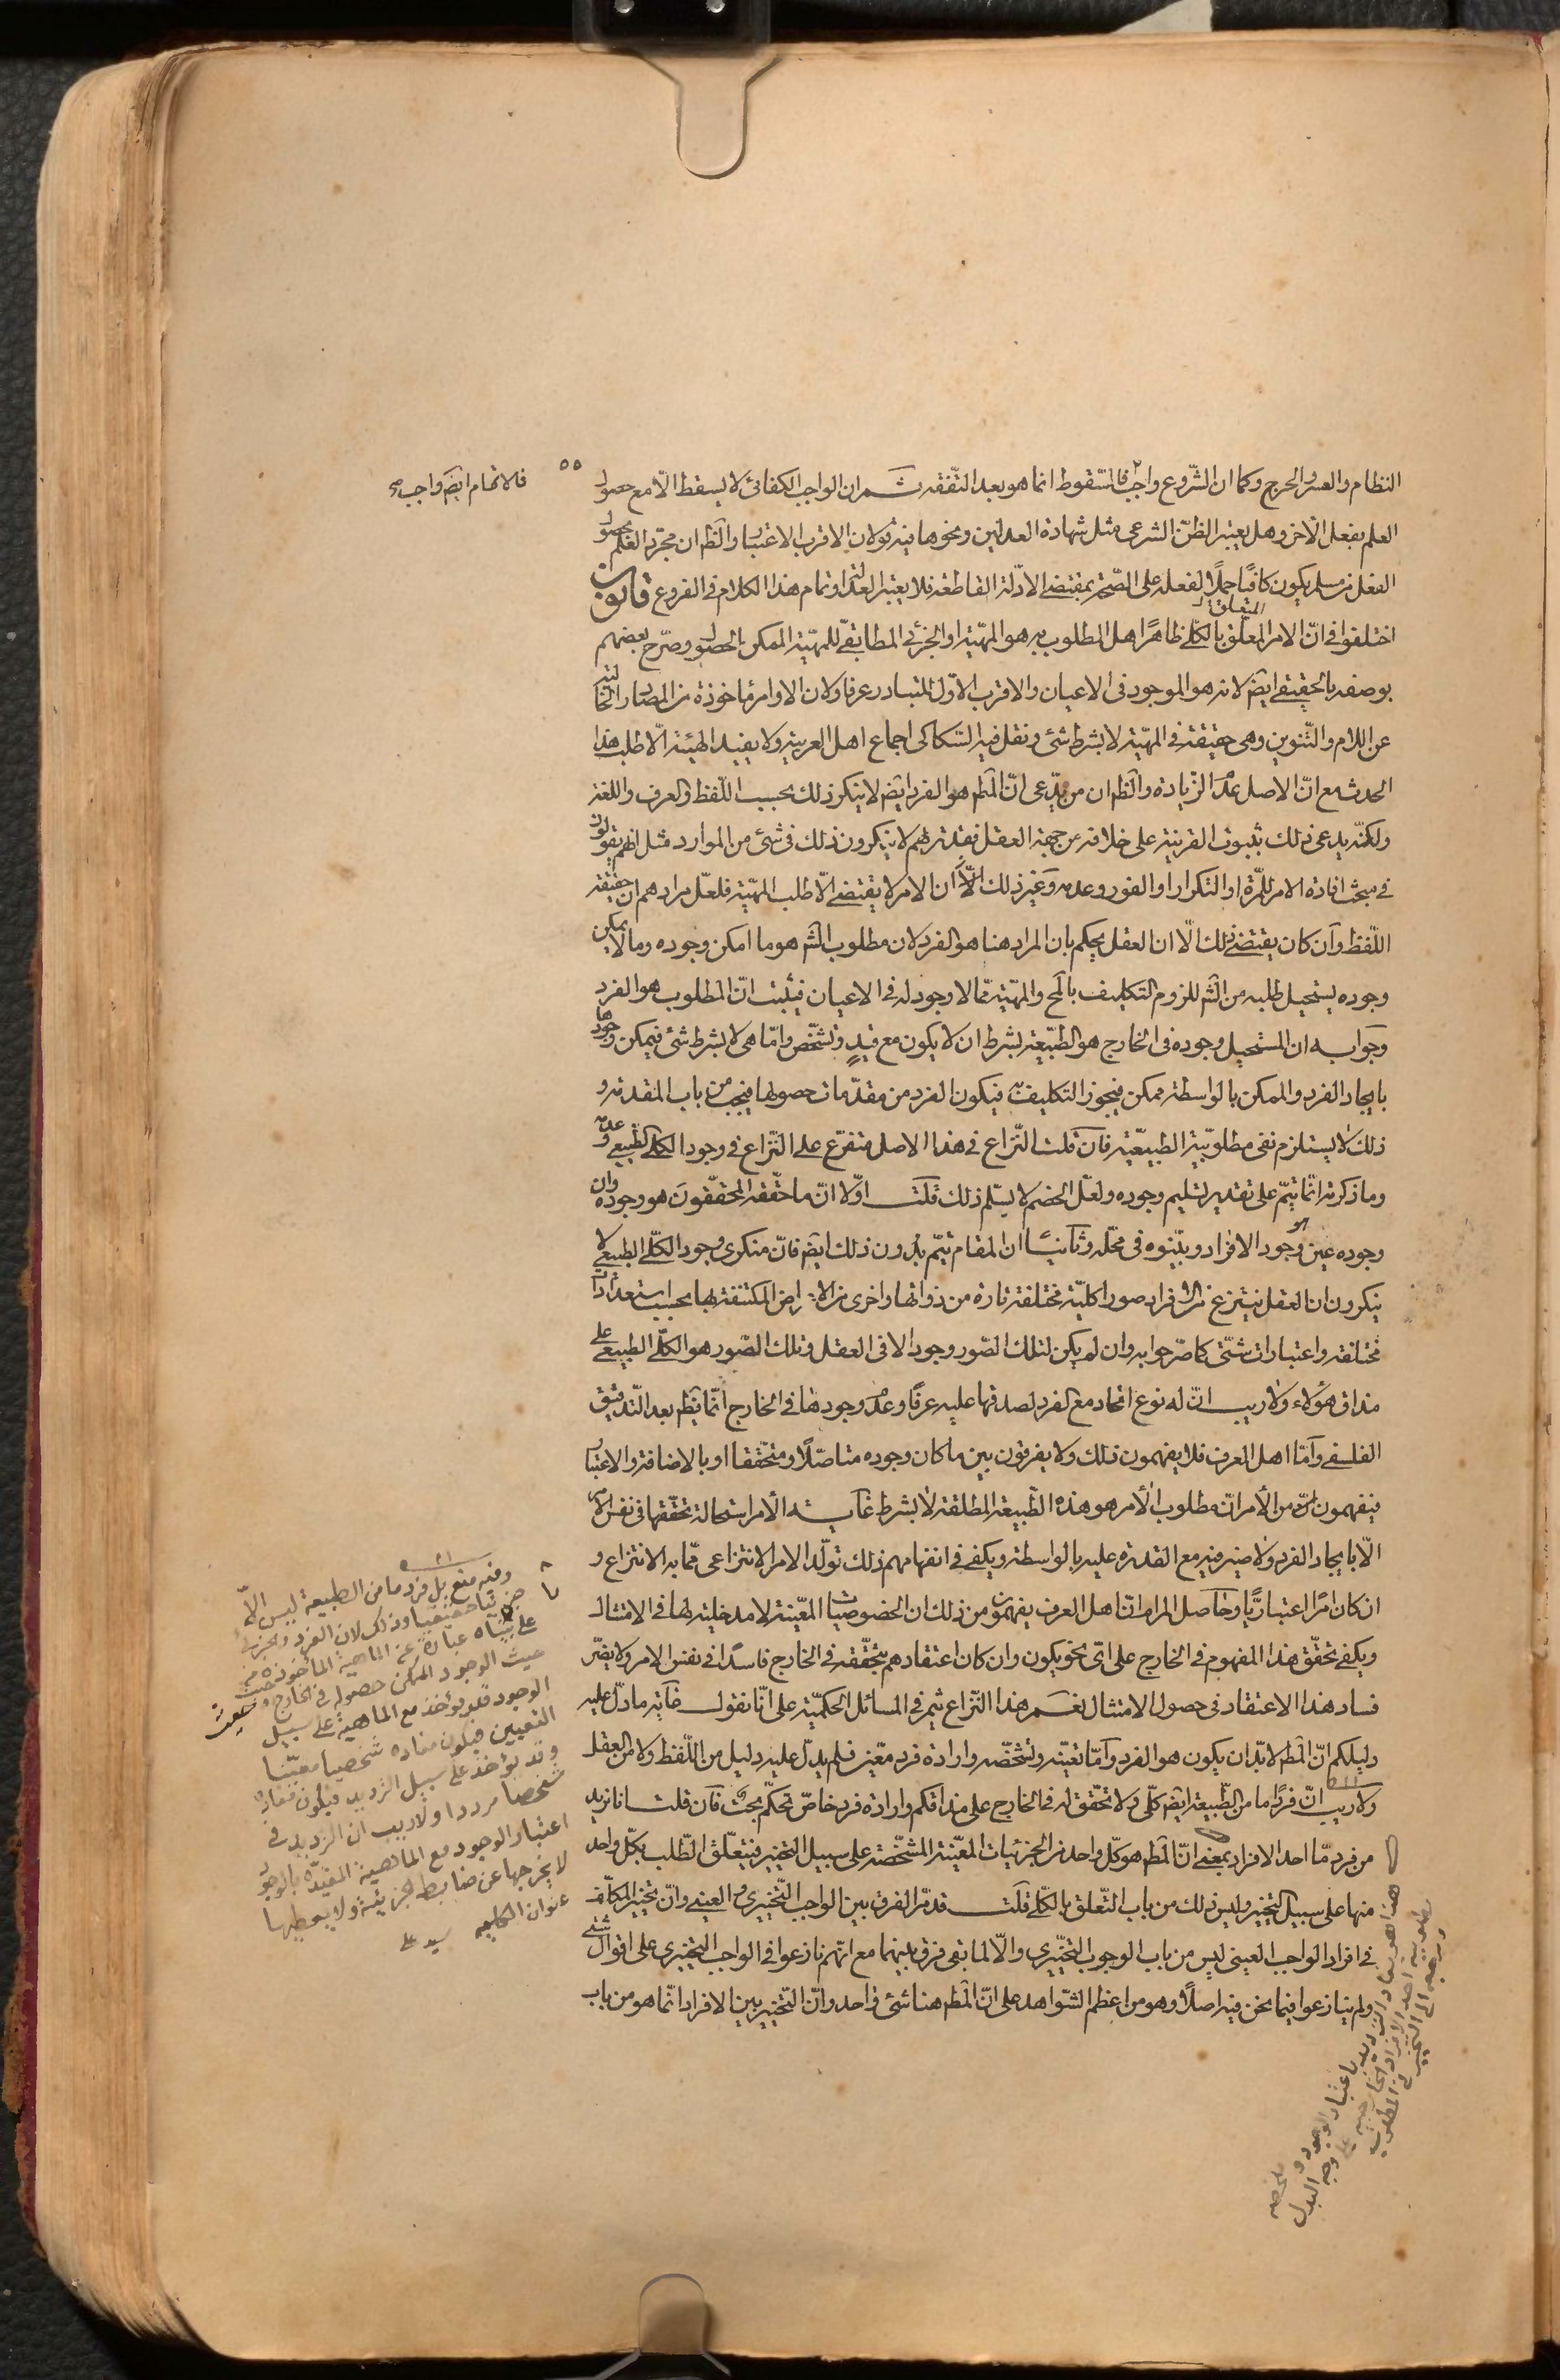 النظام والعسر والحرج وكما ان الشّروع واجب فالسّقوط انما هو بعد التفقه ثم ان الواجب الكفائى لا يسقط الّا مع حصول
العلم بفعل الآخر وهل يعتبر الظنّ الشرعى مثل شهادة العدلين ونحوها فيه قولان الاقرب الاعتبار والظ ان مجرّد العلم بحصول
الفعل من مسلم يكون كافيًا حملًا لفعله على الصّحة بمقتضى الادّلة القاطعة فلا يعتبر العدالة وتمام هذا الكلام فى الفروع قانون
اختلفوا فى انّ الامر المعلّق بالكلّى ظاهرًا هل المطلوب به هو المهيّة او الجزئى المطابق للمهيّة الممكن الحصول وصرّح بعضهم
المتعلق
بوصفه بالحقيقى ايضً لانه هو الموجود فى الاعيان والاقرب الاوّل للتبادر عرفا ولان الاوامر مأخوذة من المصادر الخالية
عن اللام والتّنوين وهى حقيقة فى المهيّة لا بشرط شئ ونقل فيه السّكاكى اجماع اهل العربية ولا يفيد الهيئة الّا طلب هذا
الحدث مع انّ الاصل عدم الزّيادة والظ ان من يدّعى انّ المط هو الفرد ايضً لا ينكر ذلك بحسب اللّفظ والعرف واللغة
ولكنّه يدعى ذلك بثبوت القرينة على خلافه من جهة العقل فقد تريهم لا ينكرون ذلك فى شئ من الموارد مثل انهم يقولون
فى مبحث افادة الامر للمرّة او التكرار او الفور وعدمه وغير ذلك الّا ان الامر لا يقتضى الّا طلب المهيّة فلعلّ مرادهم ان حقيقة
اللّفظ وان كان يقتضى ذلك الّا ان العقل يحكم بان المراد هنا هو الفرد لان مطلوب الشّ هو ما امكن وجوده وما لا يمكن
وجوده يستحيل طلبه من الشّ للزوم التكليف بالمح والمهيّة ممّا لا وجود له فى الاعيان فيثبت انّ المطلوب هو الفرد
وجوابه ان المستحيل وجوده فى الخارج هو الطبيّعة بشرط ان لا يكون مع قيدٍ وتشخّص وامّا هى لا بشرط شئ فيمكن وجودها
بايجاد الفرد والممكن بالواسطة ممكن فيجوز التكليف به فيكون الفرد من مقدّمات حصولها فيجب من باب المقدّمة و
ذلك لا يستلزم نفى مطلوبيّة الطبيعيّة فان قلت النّزاع فى هذا الاصل متفرّع على النّزاع فى وجود الكلّى الطّبيعى وعدمه
وما ذكرته انّما يتمّ على تقدير تسليم وجوده ولعلّ الخصم لا يسلّم ذلك قلت اوّلا انّ ما حقّقه المحقّقون هو وجوده وان
وجوده عين وجود الافراد وبيّنوه فى محلّه وثانيًا ان المقام يتمّ بدون ذلك ايضً فانّ منكرى وجود الكلّى الطبيعى لا
ينكرون ان العقل ينتزع من الافراد صورا كليّة مختلفة تارة من ذواتها واخرى من الاعراض المكتنفة بها بحسب استعدادات
مختلفه واعتبارات شتّى كما صرّحوا به وان لم يكن لتلك الصّور وجود الا فى العقل وتلك الصّور هو الكلّى الطبيعى على
مذاق هؤلاء ولا ريب انّ له نوع اتحاد مع الفرد لصدقها عليه عرفًا وعدم وجودها فى الخارج انّما يظهر بعد التّدقيق
الفلسفى وامّا اهل العرف فلا يفهمون ذلك ولا يفرقون بين ما كان وجوده متاصّلًا ومتحقّقا او بالاضافة والاعتبار
فيفهمون من الأمر انّ مطلوب الأمر هو هذه الطّبيعة المطلقة لا بشرط غاية الأمر استحالة تحقّقها فى نفس الامر
الّا بايجاد الفرد ولا ضير فيه مع القدرة عليه بالواسطة ويكفى فى انفهامهم ذلك تولّد الامر الانتزاعى ممّا به الانتزاع و
ان كان امرًا اعتباريًّا وحاصل المرام انّ اهل العرف يفهمون من ذلك ان الخصوصيّات المعيّنة لا مدخلية لها فى الامتثال
ويكفى تحقّق هذا المفهوم فى الخارج على اىّ نحو يكون وان كان اعتقادهم بتحقّقه فى الخارج فاسدًا فى نفس الامر ولا يضّر
فساد هذا الاعتقاد فى حصول الامتثال نعم هذا النّزاع يثمر فى المسائل الحكميّة على انّا نقول غاية ما دلّ عليه
دليلكم انّ المط لا بدّ ان يكون هو الفرد وامّا تعيّنه وتشخّصه وارادة فرد معّين فلم يدلّ عليه دليل من اللّفظ ولا من العقل
ولا ريب انّ فردًا ما من الطّبيعة ايضً كلّى ولا تحقّق له فى الخارج على مذاقكم وارادة فرد خاصّ تحكّم بحت فان قلت انا نريد
من فرد مّا احد الافراد بمعنى انّ المط هو كلّ واحد من الجزئيات المعيّنة المشخّصة على سبيل التخيير فيتعلّق الطّلب بكلّ واحد
منها على سبيل التخيير وليس ذلك من باب التّعلّق بالكلّى قلت قد مرّ الفرق بين الواجب التّخييرى والعينى وانّ تخيير المكلّف
فى افراد الواجب العينى ليس من باب الوجوب التخيّيرى والّا لما بقى فرق بينهما مع انهم نازعوا فى الواجب التخييرى على اقوال شتى
ولم ينازعوا فيما نحن فيه اصلًا وهو من اعظم الشّواهد على انّ المط هنا شئ واحد وانّ التّخيير بين الافراد انّما هو من باب
فالاتمام ايضً واجب صح
وفيه منع بل فرد ما من الطبيعة ليس الّا
جزئيا حقيقيا وذلك لان الفرد والجزئى
على بيناه عبارة عن الماهية المأخوذة من
حيث الوجود الممكن حصوله فى الخارج و
الوجود قد يؤخذ مع الماهية على سبيل
التعيين فيكون مفاده شخصيا معيّنا
وقد يؤخذ على سبيل الترديد فيكون مفاده
شخصا مرددا ولا ريب ان الترديد فى
اعتبار الوجود مع الماهية المقيّدة بالوجود
لا يخرجها عن ضابط الجزئيّة ولا يعطيها
عنوان الكلية سيد على
هذا هو مفاد الترديد باعتبار الوجود و
احد الافراد الخارجية على وجه البدل
ومرجعه الى التخيير فى المطلوب